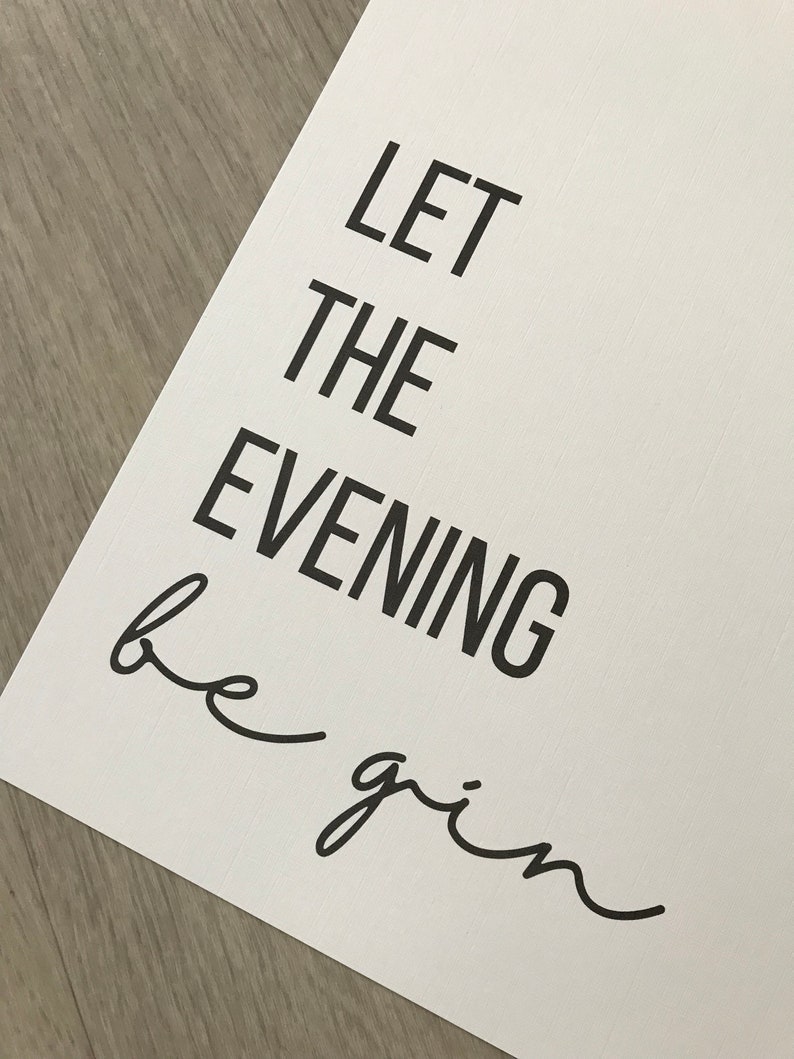 LET
THE
EVENING
be gin